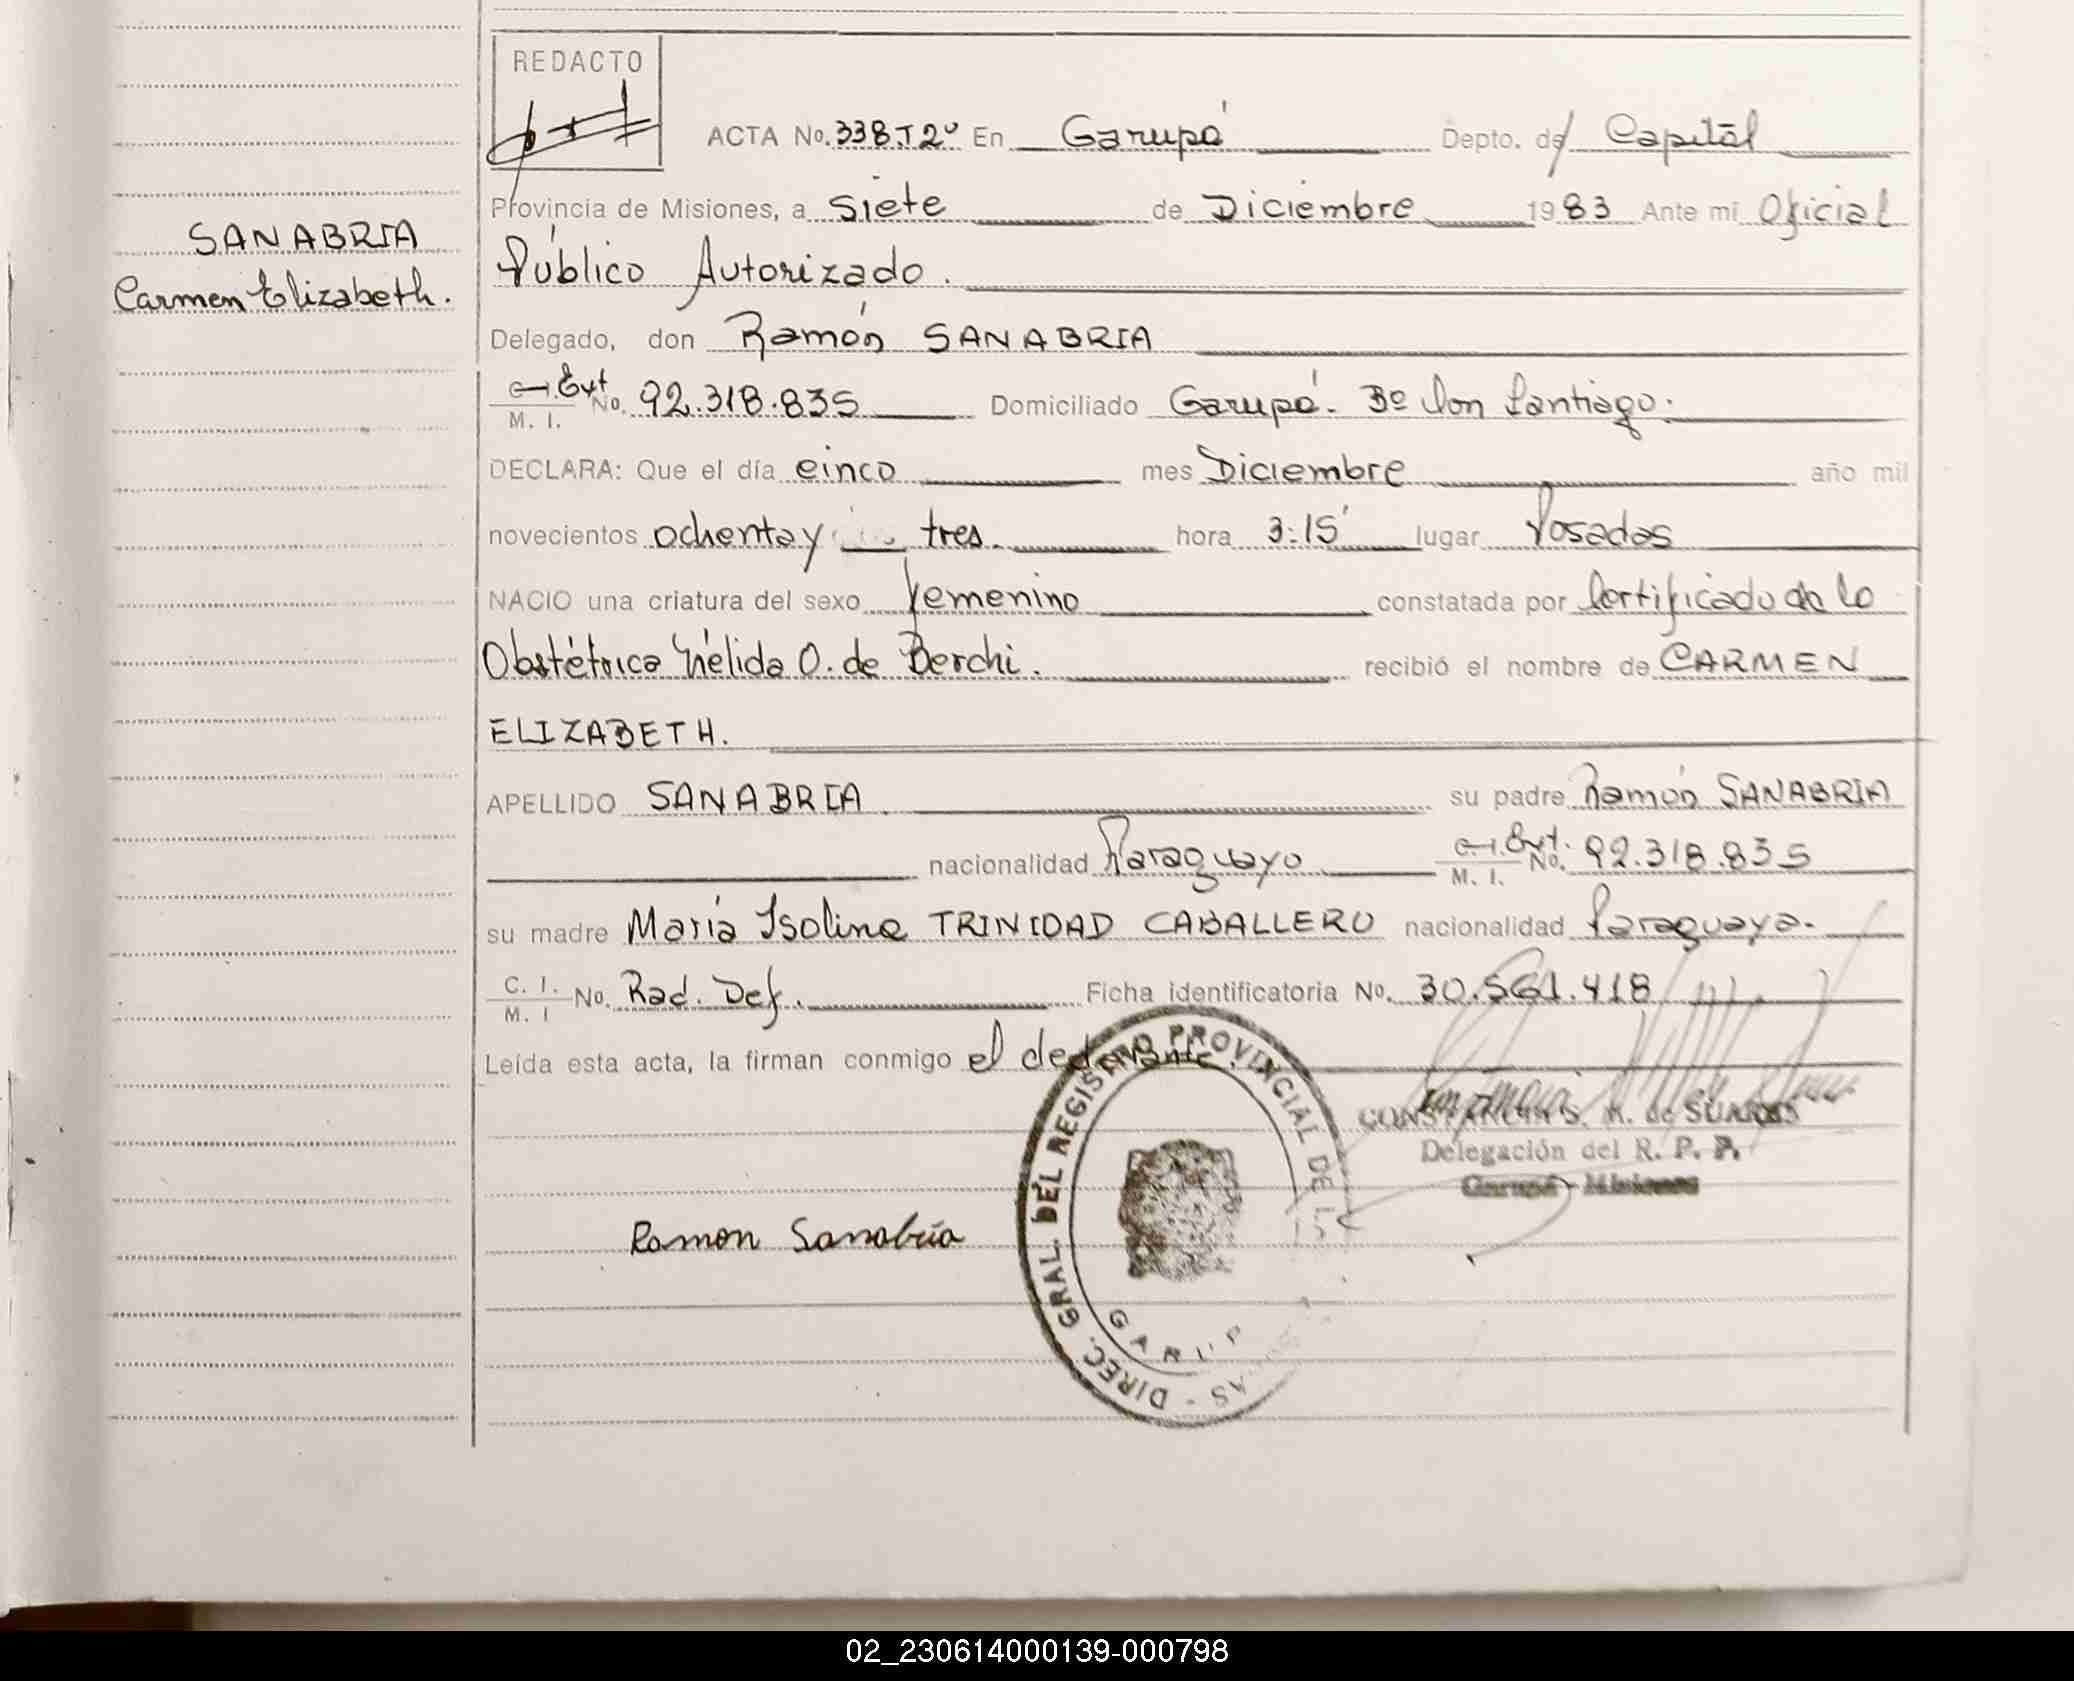 REDACTO
ACTA No. 338.T2º En Garupá Depto. de Capital
Provincia de Misiones, a siete de Diciembre 1983 Ante mi Oficial
Público Autorizado.
SANABRIA
Carmen Elizabeth.
Delegado, don Ramón SANABRIA
C.I. Ext. M. I. No. 92.318.835 Domiciliado Garupá. Bº Don Santiago.
DECLARA: Que el día cinco mes Diciembre año mil
novecientos ochenta y tres. hora 3:15' lugar Posadas
NACIO una criatura del sexo femenino constatada por Certificado de la
Obstétrica Nélida O. de Berchi. recibió el nombre de CARMEN
ELIZABETH.
APELLIDO SANABRIA. su padre Ramón SANABRIA
nacionalidad Paraguayo C.I. Ext. M. I. No. 92.318.835
su madre María Isolina TRINIDAD CABALLERO nacionalidad Paraguaya.
C. I. M. I No. Rad. Def. Ficha identificatoria No. 30.561.418
Leída esta acta, la firman conmigo el declarante.
CONSTANCIA S. M. de SUAREZ
Delegación del R. P. P.
Garupá - Misiones
Ramon Sanabria
DIREC. GRAL. DEL REGISTRO PROVINCIAL DE L AS -
GARUP
02_230614000139-000798